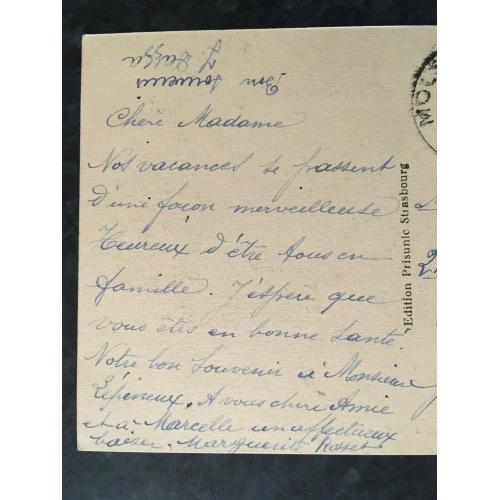 Bon
souvenir
J.
Chère Madame
Nos vacances se passent
d'une façon merveilleuse
Heureux d'être tous en
famille. J'espère que
vous êtes en bonne santé.
Notre bon souvenir à Monsieur
Lépineux. A vous chère Amie
et à Marcelle un affectueux
baiser. Marguerite Rosset
Edition Prisunic Strasbourg